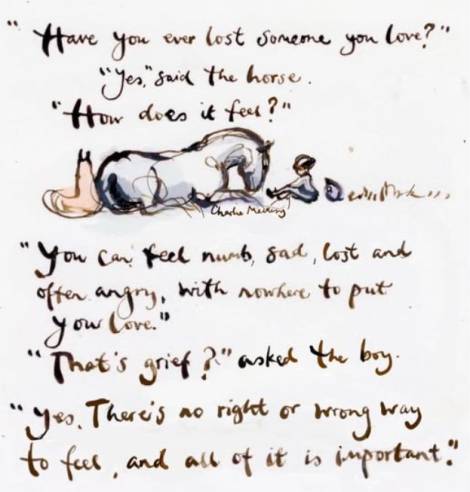 "Have you ever lost someone you love?"
"Yes," said the horse.
"How does it feel?"
Charlie Mackesy
"You can feel numb, sad, lost and
often angry, with nowhere to put
your love."
"That's grief?" asked the boy.
"Yes. There's no right or wrong way
to feel, and all of it is important."